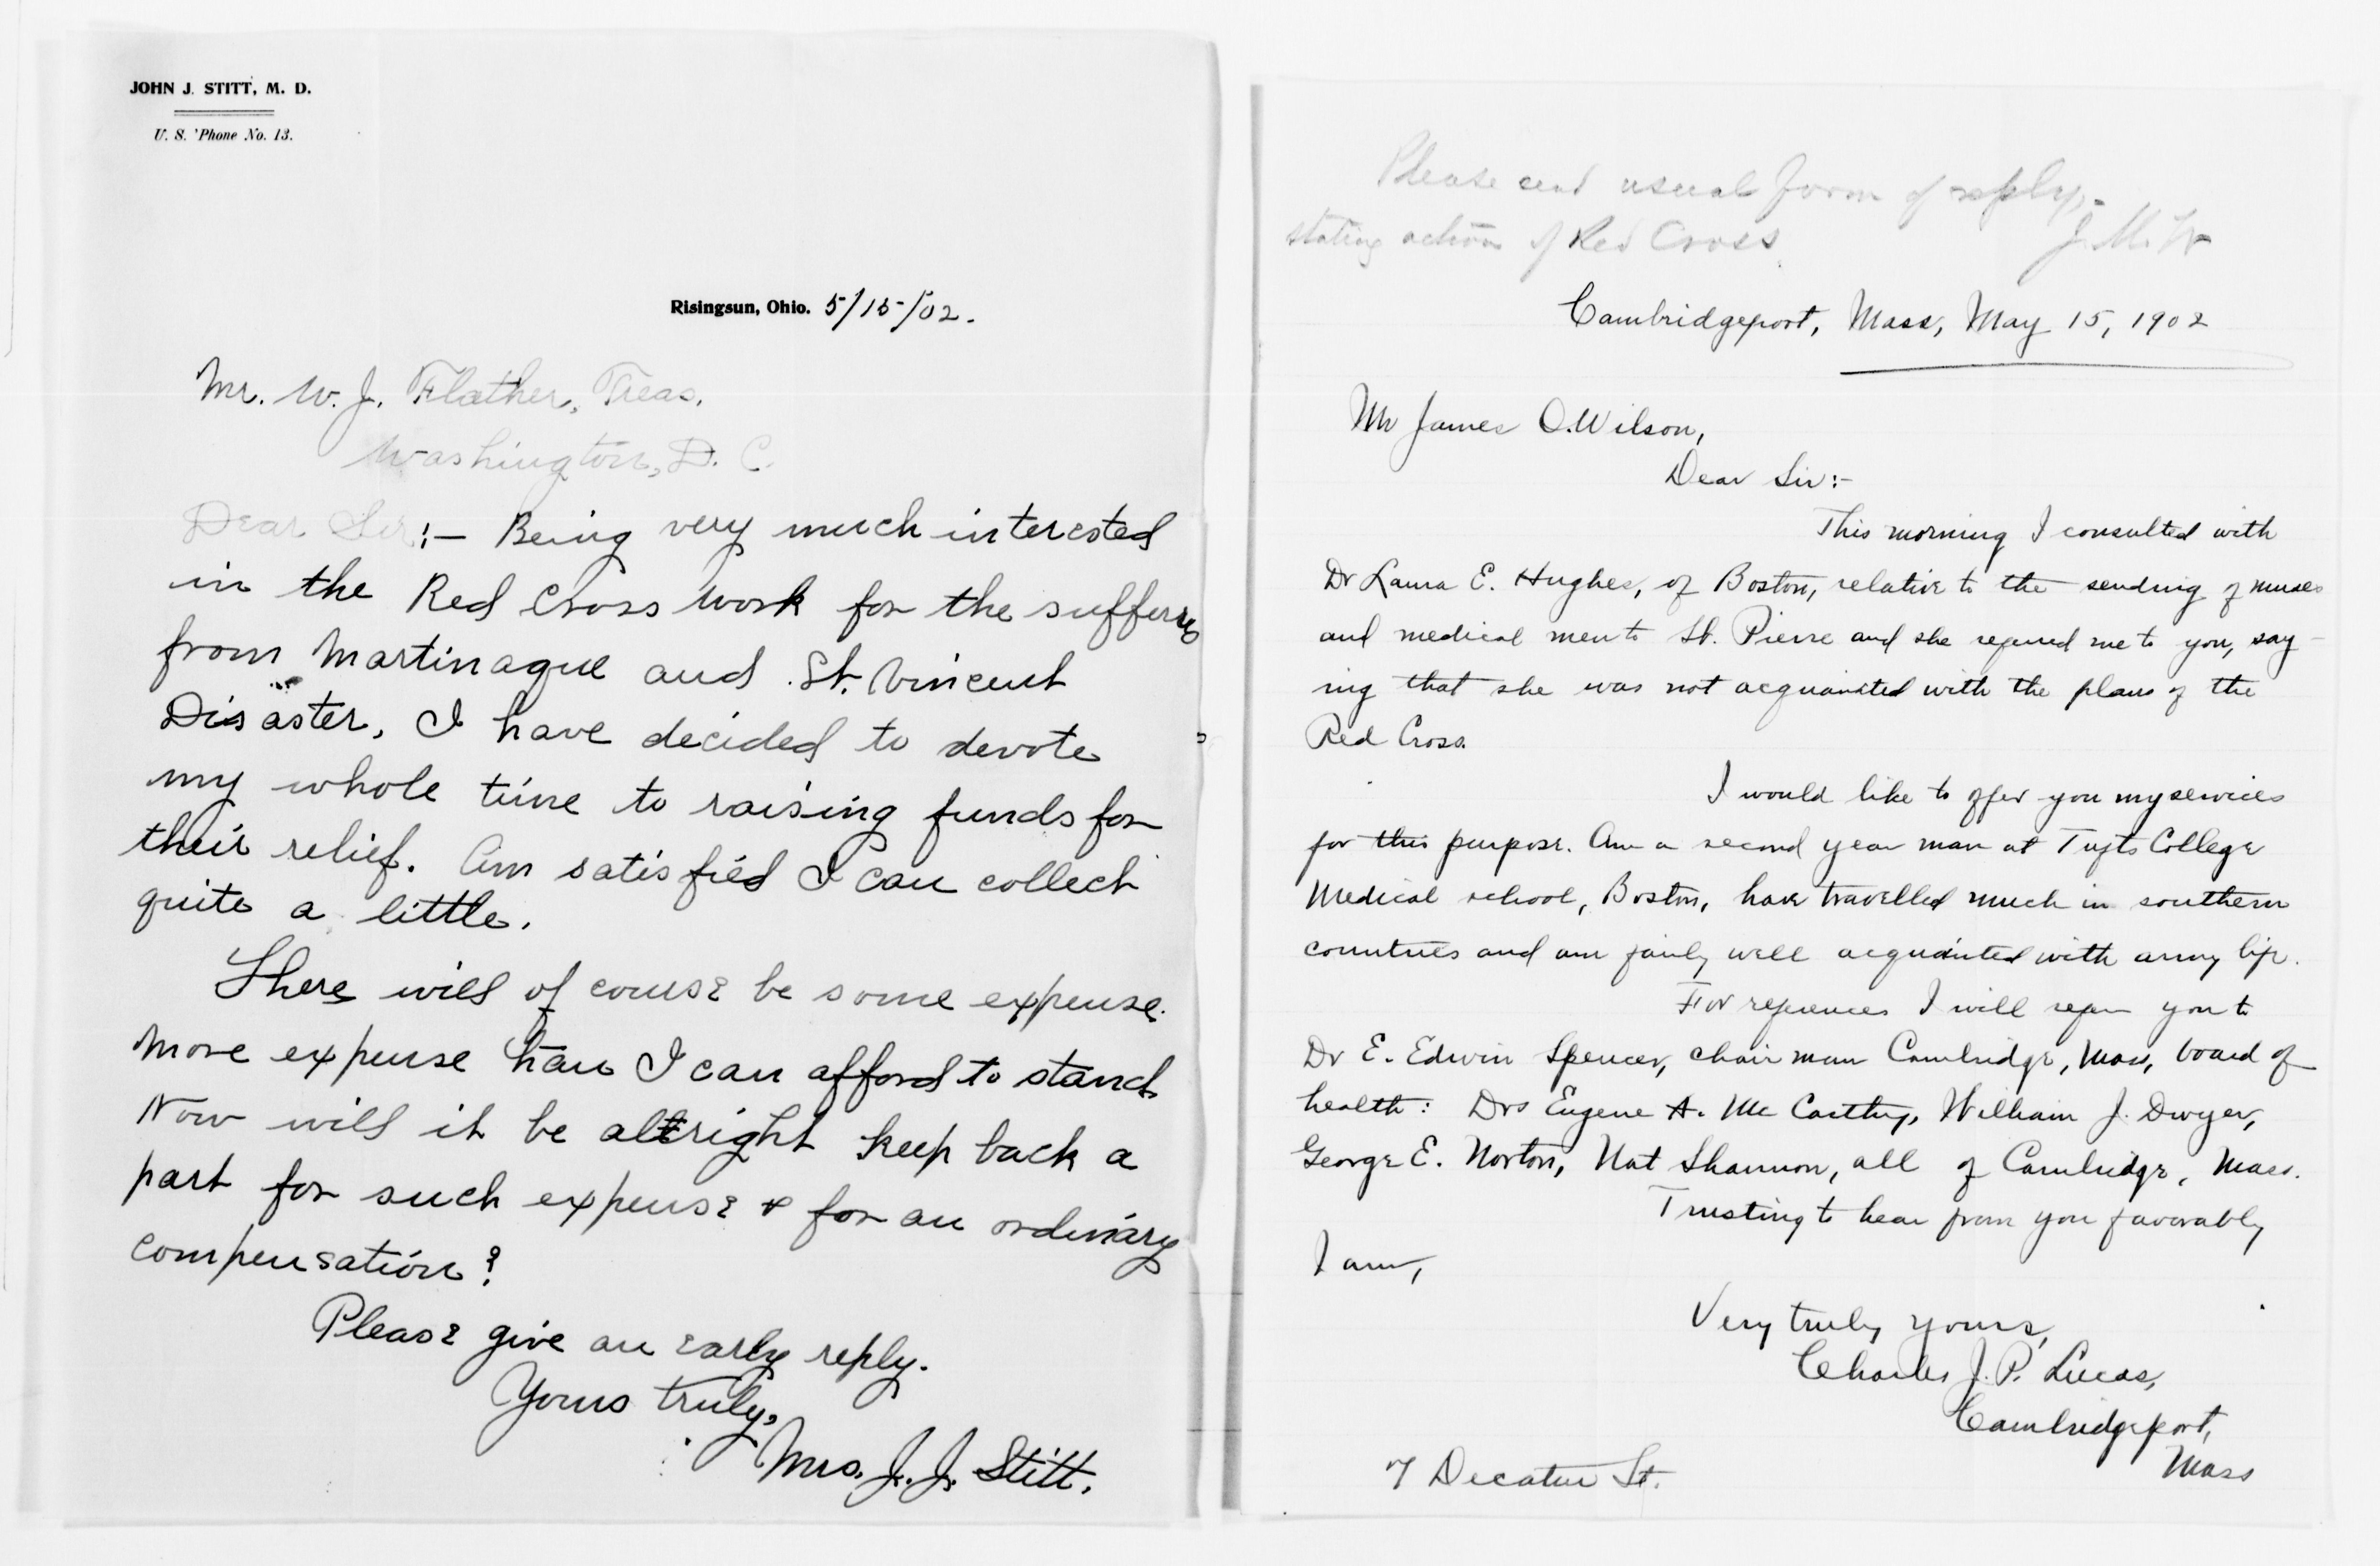 JOHN J. STITT, M. D.
U. S. 'Phone No. 13.
Risingsun, Ohio. 5/15/02.
Mr. W. J. Flather, Treas.
Washington, D. C.
Dear Sir:— Being very much interested
in the Red Cross work for the sufferers
from Martinaque and St. Vincent
Disaster, I have decided to devote
my whole time to raising funds for
their relief. Am satisfied I can collect
quite a little.
There will of course be some expense.
More expense han I can afford to stand.
Now will it be altright keep back a
part for such expense & for an ordinary
compensation?
Please give an early reply.
Yours truly,
Mrs. J. J. Stitt.
Please send usual form of reply,-
stating action of Red Cross
Cambridgeport, Mass, May 15, 1902
Mr James O. Wilson,
Dear Sir:-
This morning I consulted with
Dr Laura E. Hughes, of Boston, relative to the sending of nurses
and medical men to St. Pierre and she refered me to you, say-
ing that she was not acquainted with the plans of the
Red Cross.
I would like to offer you my services
for this purpose. Am a second year man at Tufts College
Medical school, Boston, have travelled much in southern
countries and am fairly well acquainted with army life.
For references I will refer you to
Dr E. Edwin Spencer, chairman Cambridge, Mass, board of
health: Drs Eugene A. McCarthy, William J. Dwyer,
George E. Norton, Nat Shannon, all of Cambridge, Mass.
Trusting to hear from you favorably
I am,
Very truly yours,
Charles J. P. Lucas,
Cambridgeport,
Mass
7 Decatur St.